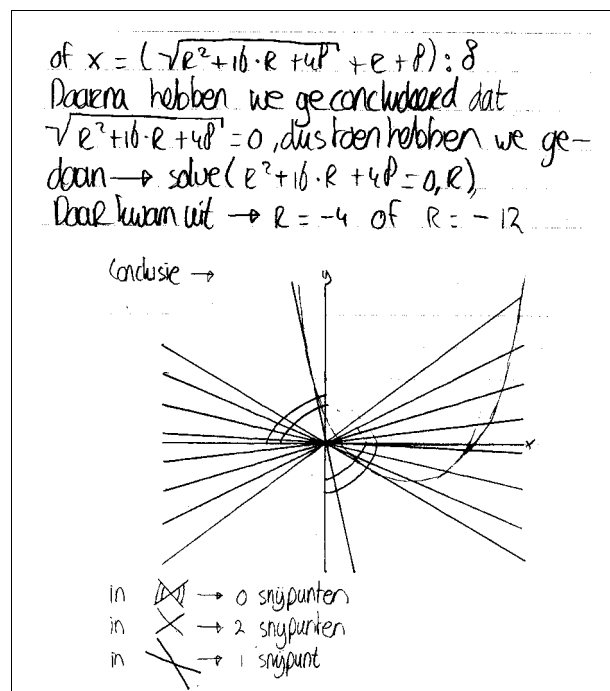 of x = (√R²+16·R+48 + R + 8) : 8
Daarna hebben we geconcludeerd dat
√R²+16·R+48 = 0, dus toen hebben we ge-
daan → solve(R²+16·R+48=0,R)
Daar kwam uit → R = -4 of R = -12
Conclusie →
y
x
in → 0 snijpunten
in → 2 snijpunten
in → 1 snijpunt